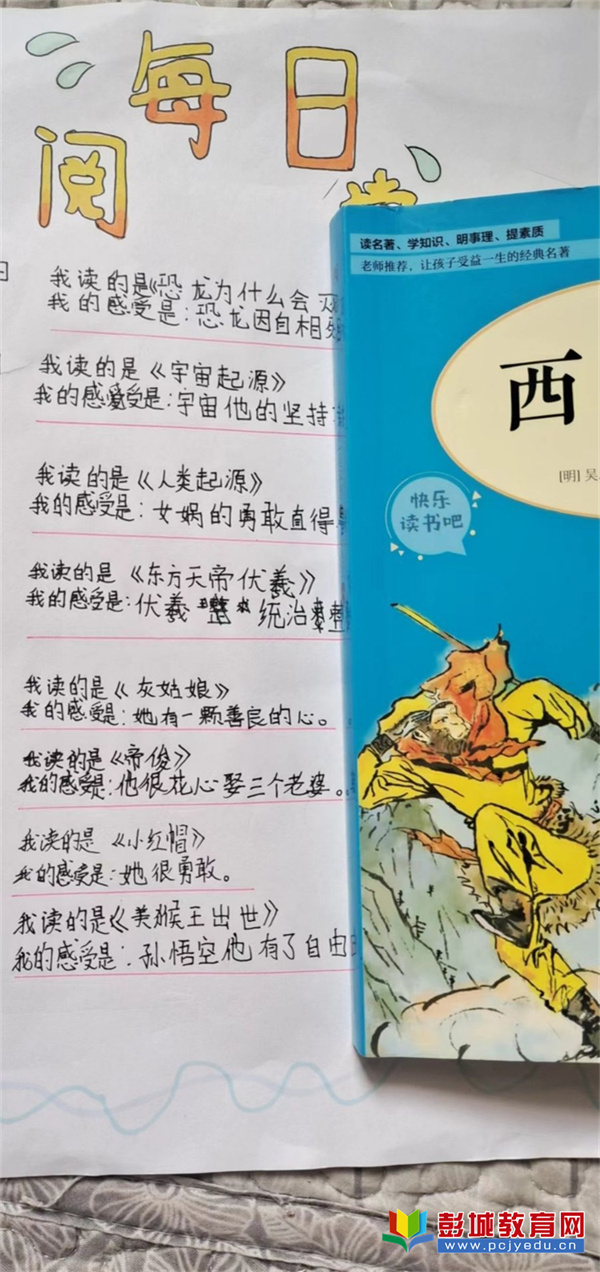 每日
阅
我读的是《恐龙为什么会
我的感受是:恐龙因自相
我读的是《宇宙起源》
我的感受是:宇宙他的坚持
我读的是《人类起源》
我的感受是:女娲的勇敢直得
我读的是《东方天帝伏羲》
我的感受是:伏羲 统治
我读的是《灰姑娘》
我的感受是:她有一颗善良的心。
我读的是《帝俊》
我的感受是:他很花心娶三个老婆。
我读的是《小红帽》
我的感受是:她很勇敢。
我读的是《美猴王出世》
我的感受是:孙悟空他有了自由
读名著、学知识、明事理、提素质
老师推荐,让孩子受益一生的经典名著
西
[明]吴
快乐
读书吧
彭城教育网
www.pcjyedu.cn